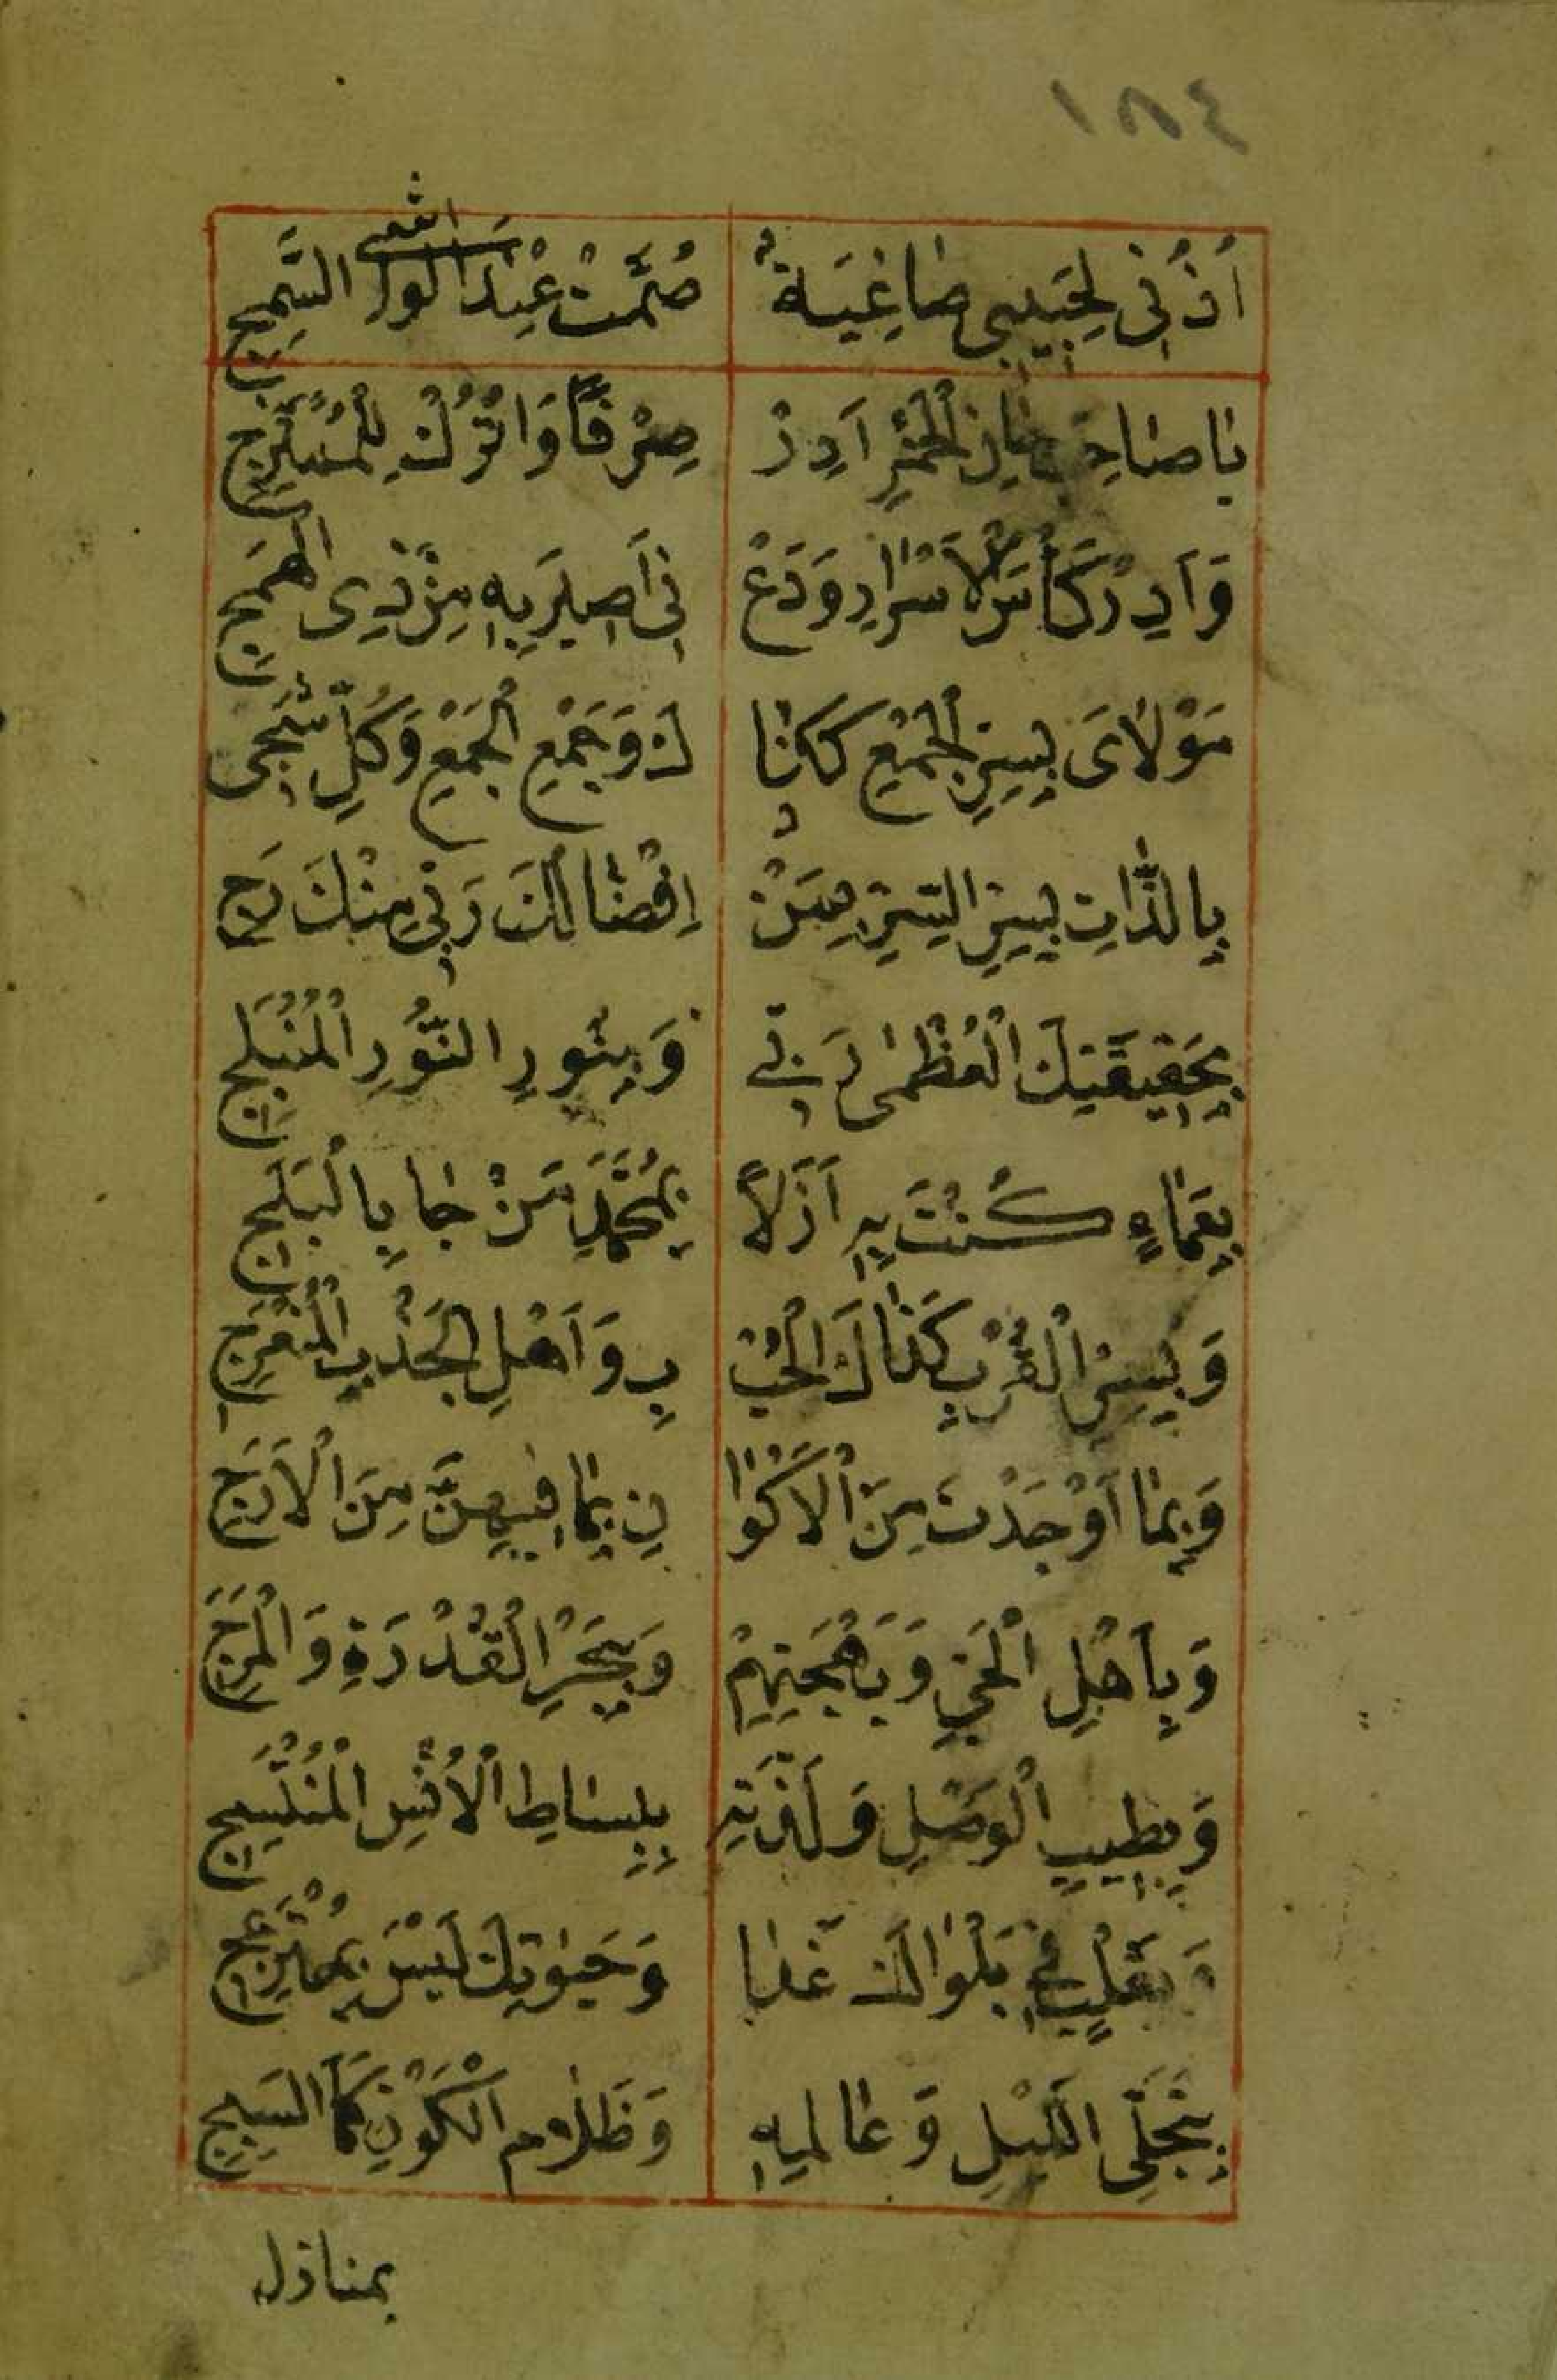 ١٨٤
اُذُنِى لِحَبِيبِى صَاغِيَةٌ صُمَّتْ عِنْدَ الْوَاشِى السَّمِجِ
يَا صَاحِبَ حَانِ الْخَمْرِ اَدِرْ صِرْفًا وَاتْرُكْ لِلْمُمْتَزِجِ
وَاَدِرْ كَأْسَ الْاَسْرَارِ وَدَعْ نِى اَصِيرَ بِهِ مِنْ ذِى الْهَمَجِ
مَوْلَاىَ بِسِرِّ الْجَمْعِ كَذَا كَ وَجَمْعِ الْجَمْعِ وَكُلِّ شَجِى
بِالذَّاتِ بِسِرِّ السِّرِّ بِمَنْ اِفْضَالَكَ رَبِّى مِنْكَ رَجِ
بِحَقِيقَتِكَ الْعُظْمٰى رَبِّى وَبِنُورِ النُّورِ الْمُنْبَلِجِ
بِعَمَاءٍ كُنْتَ بِهِ اَزَلًا بِمُحَمَّدِ مَنْ جَا بِالْبَلَجِ
وَبِسِرِّ الْقُرْبِ كَذَاكَ الْحُبْ بِ وَاَهْلِ الْجَذْبِ الْمُنْعَرِجِ
وَبِمَا اَوْجَدْتَ مِنَ الْاَكْوَا نِ بِمَا فِيهِنَّ مِنَ الْاَرَجِ
وَبِاَهْلِ الْحَىِّ وَبَهْجَتِهِمْ وَبِبَحْرِ الْقُدْرَةِ وَالْمَرَجِ
وَبِطِيبِ الْوَصْلِ وَلَذَّتِهِ بِبِسَاطِ الْاُنْسِ الْمُنْتَسِجِ
وَبِقَلْبٍ فِى بَلْوَاكَ غَدَا وَحَيٰوتِكَ لَيْسَ بِمُنْزَعِجِ
بِتَجَلِّى اللَّيْلِ وَعَالَمِهِ وَظَلَامِ الْكَوْنِ كَمَا السَّبَجِ
بمنازل